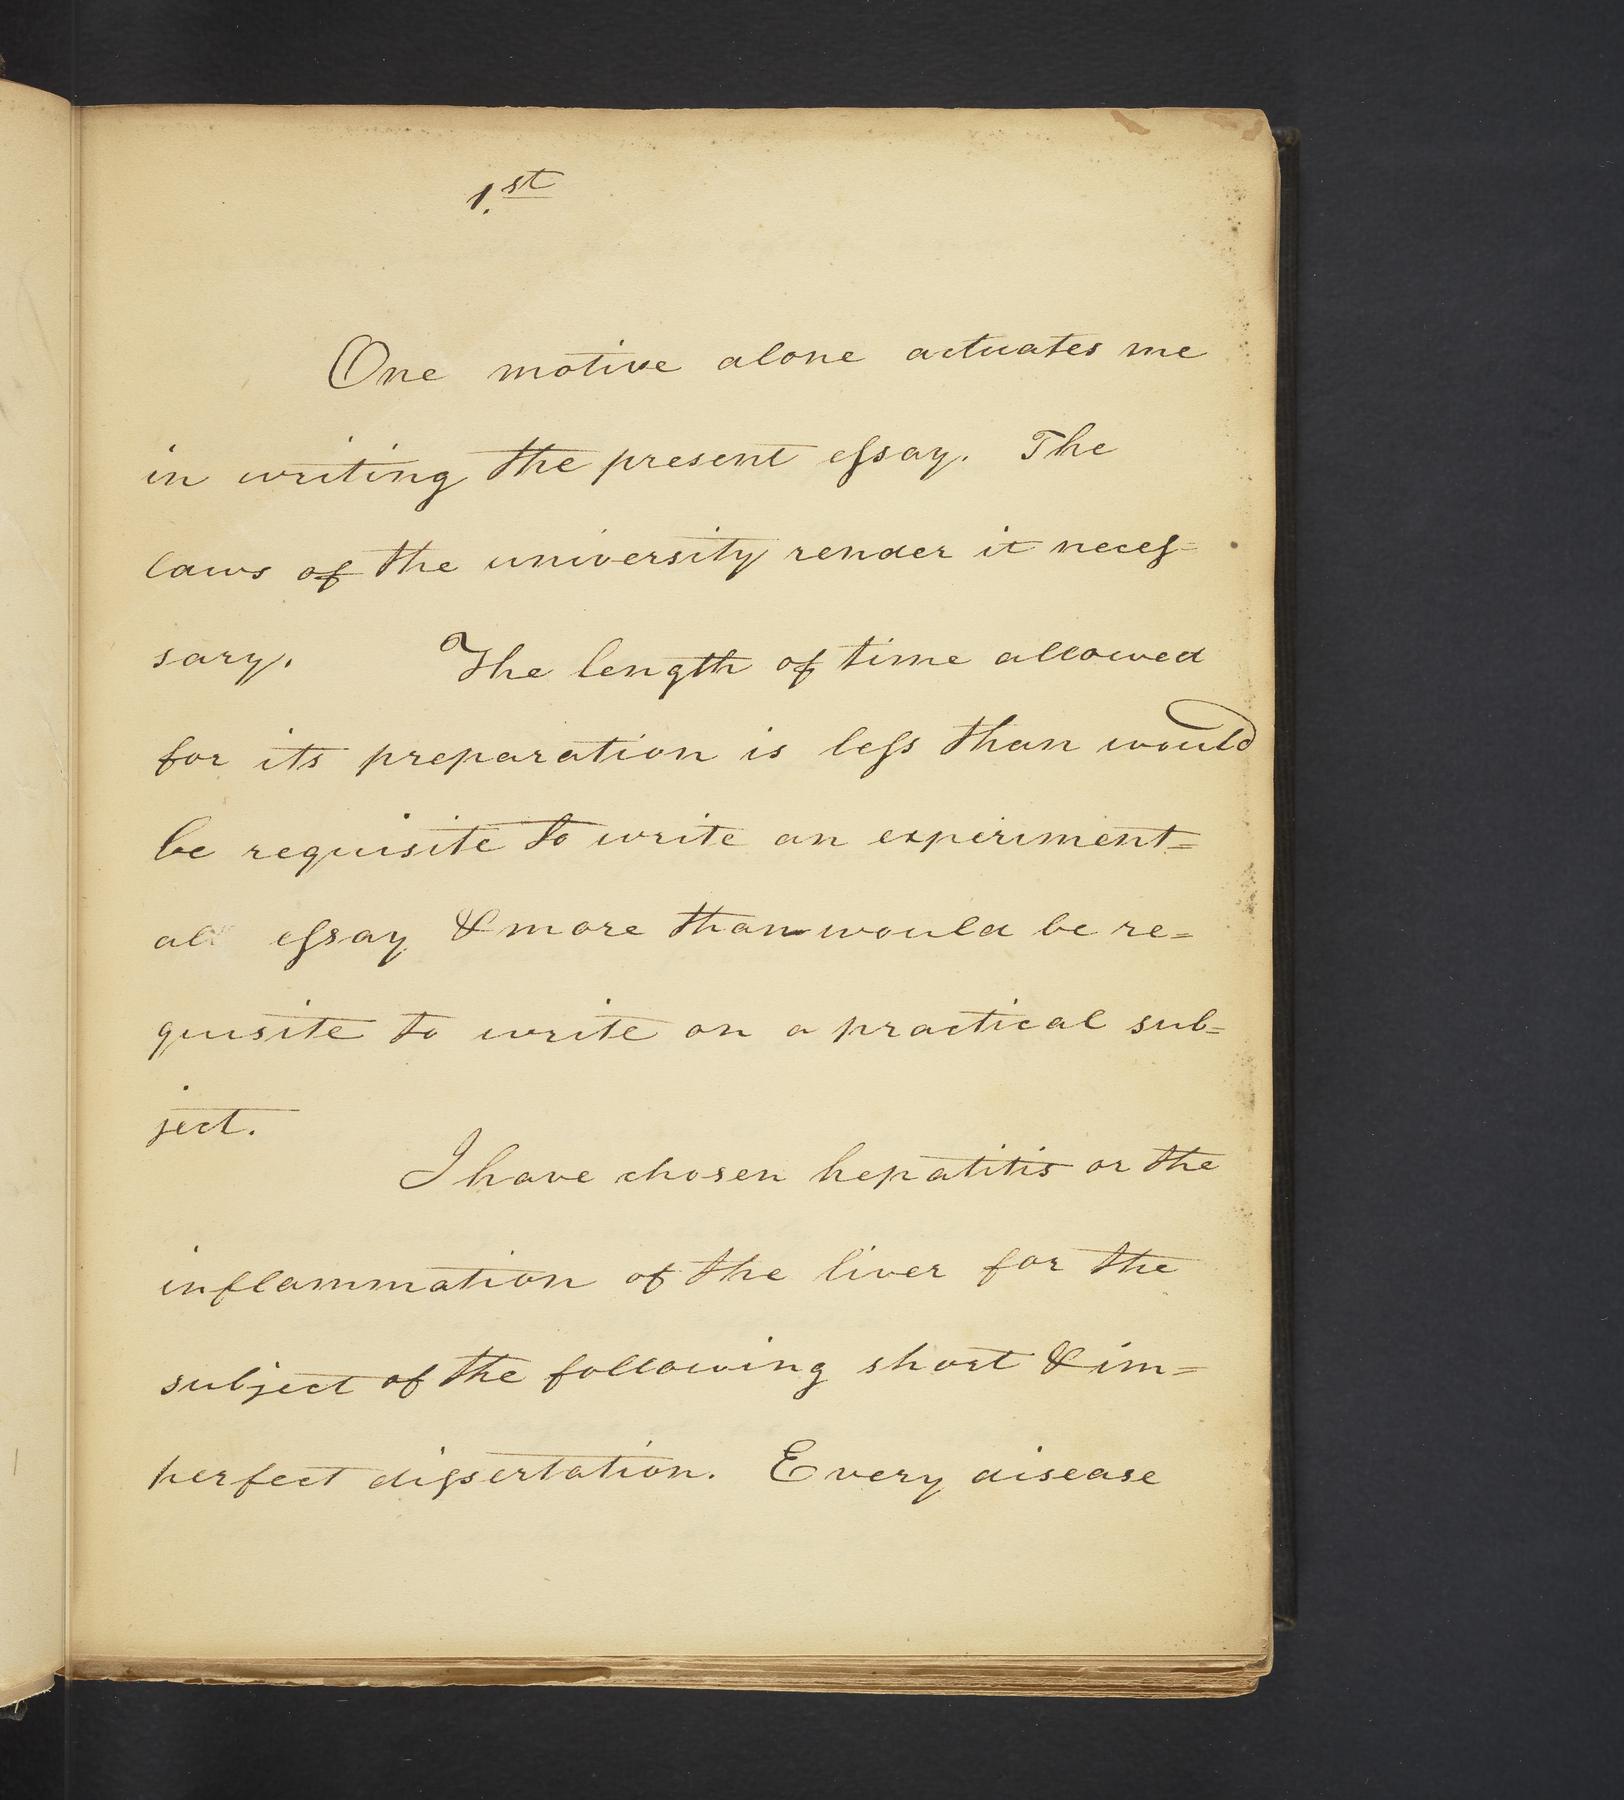 1.st
One motive alone actuates me
in writing the present essay. The
laws of the university render it neces-
sary. The length of time allowed
for its preparation is less than would
be requisite to write an experiment=
al essay & more than would be re=
quisite to write on a practical sub=
ject.
I have chosen hepatitis or the
inflammation of the liver for the
subject of the following short & im=
perfect dissertation. Every disease